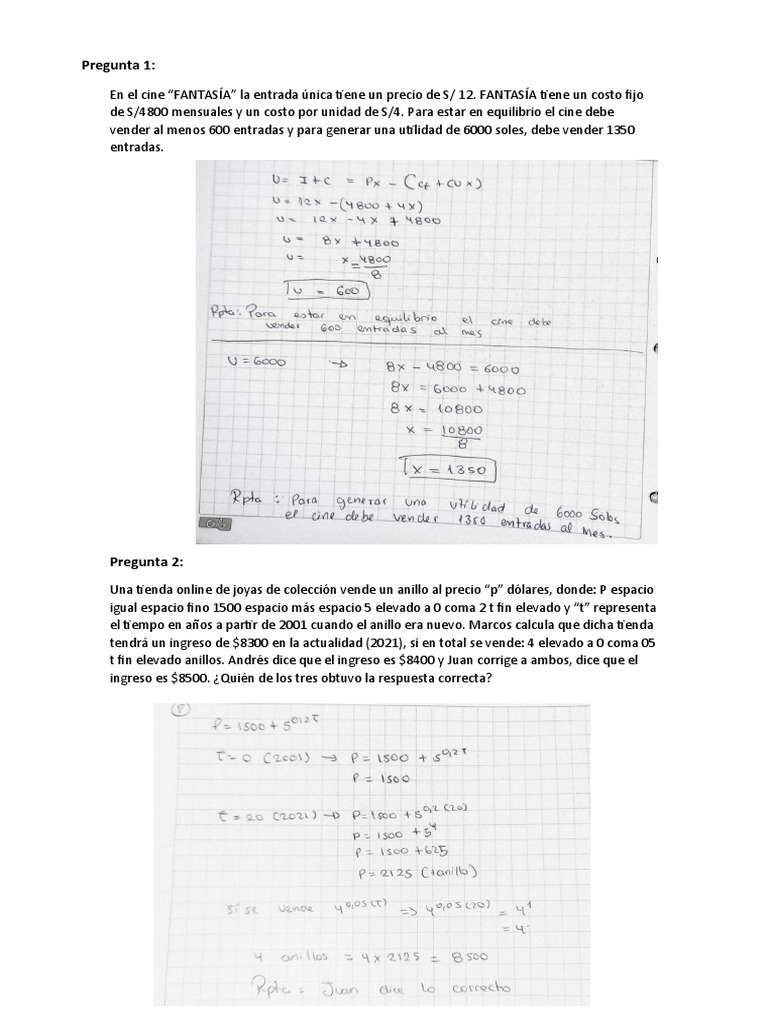 Pregunta 1:
En el cine “FANTASÍA” la entrada única tiene un precio de S/ 12. FANTASÍA tiene un costo fijo
de S/4800 mensuales y un costo por unidad de S/4. Para estar en equilibrio el cine debe
vender al menos 600 entradas y para generar una utilidad de 6000 soles, debe vender 1350
entradas.
U= I+C = Px - (Cf + CU x)
U = 12x - (4800 + 4x)
U= 12x - 4x + 4800
U = 8x + 4800
U= x = 4800
8
U = 600
Rpta: Para estar en equilibrio el cine debe
vender 600 entradas al mes
U = 6000 → 8x - 4800 = 6000
8x = 6000 + 4800
8x = 10800
x = 10800
8
x = 1350
Rpta : Para generar una utilidad de 6000 Soles
el cine debe vender 1350 entradas al mes.
Pregunta 2:
Una tienda online de joyas de colección vende un anillo al precio “p” dólares, donde: P espacio
igual espacio fino 1500 espacio más espacio 5 elevado a 0 coma 2 t fin elevado y “t” representa
el tiempo en años a partir de 2001 cuando el anillo era nuevo. Marcos calcula que dicha tienda
tendrá un ingreso de $8300 en la actualidad (2021), si en total se vende: 4 elevado a 0 coma 05
t fin elevado anillos. Andrés dice que el ingreso es $8400 y Juan corrige a ambos, dice que el
ingreso es $8500. ¿Quién de los tres obtuvo la respuesta correcta?
P = 1500 + 5^0,2t
t=0 (2001) → P = 1500 + 5^0,2t
P = 1500
t = 20 (2021) → P=1500 + 5^0,2(20)
P = 1500 + 5^4
P = 1500 + 625
P = 2125 (1anillo)
Si se vende 4^0,05(t) => 4^0,05(20) = 4^1
= 4
4 anillos = 4 x 2125 = 8500
Rpta: Juan dice lo correcto